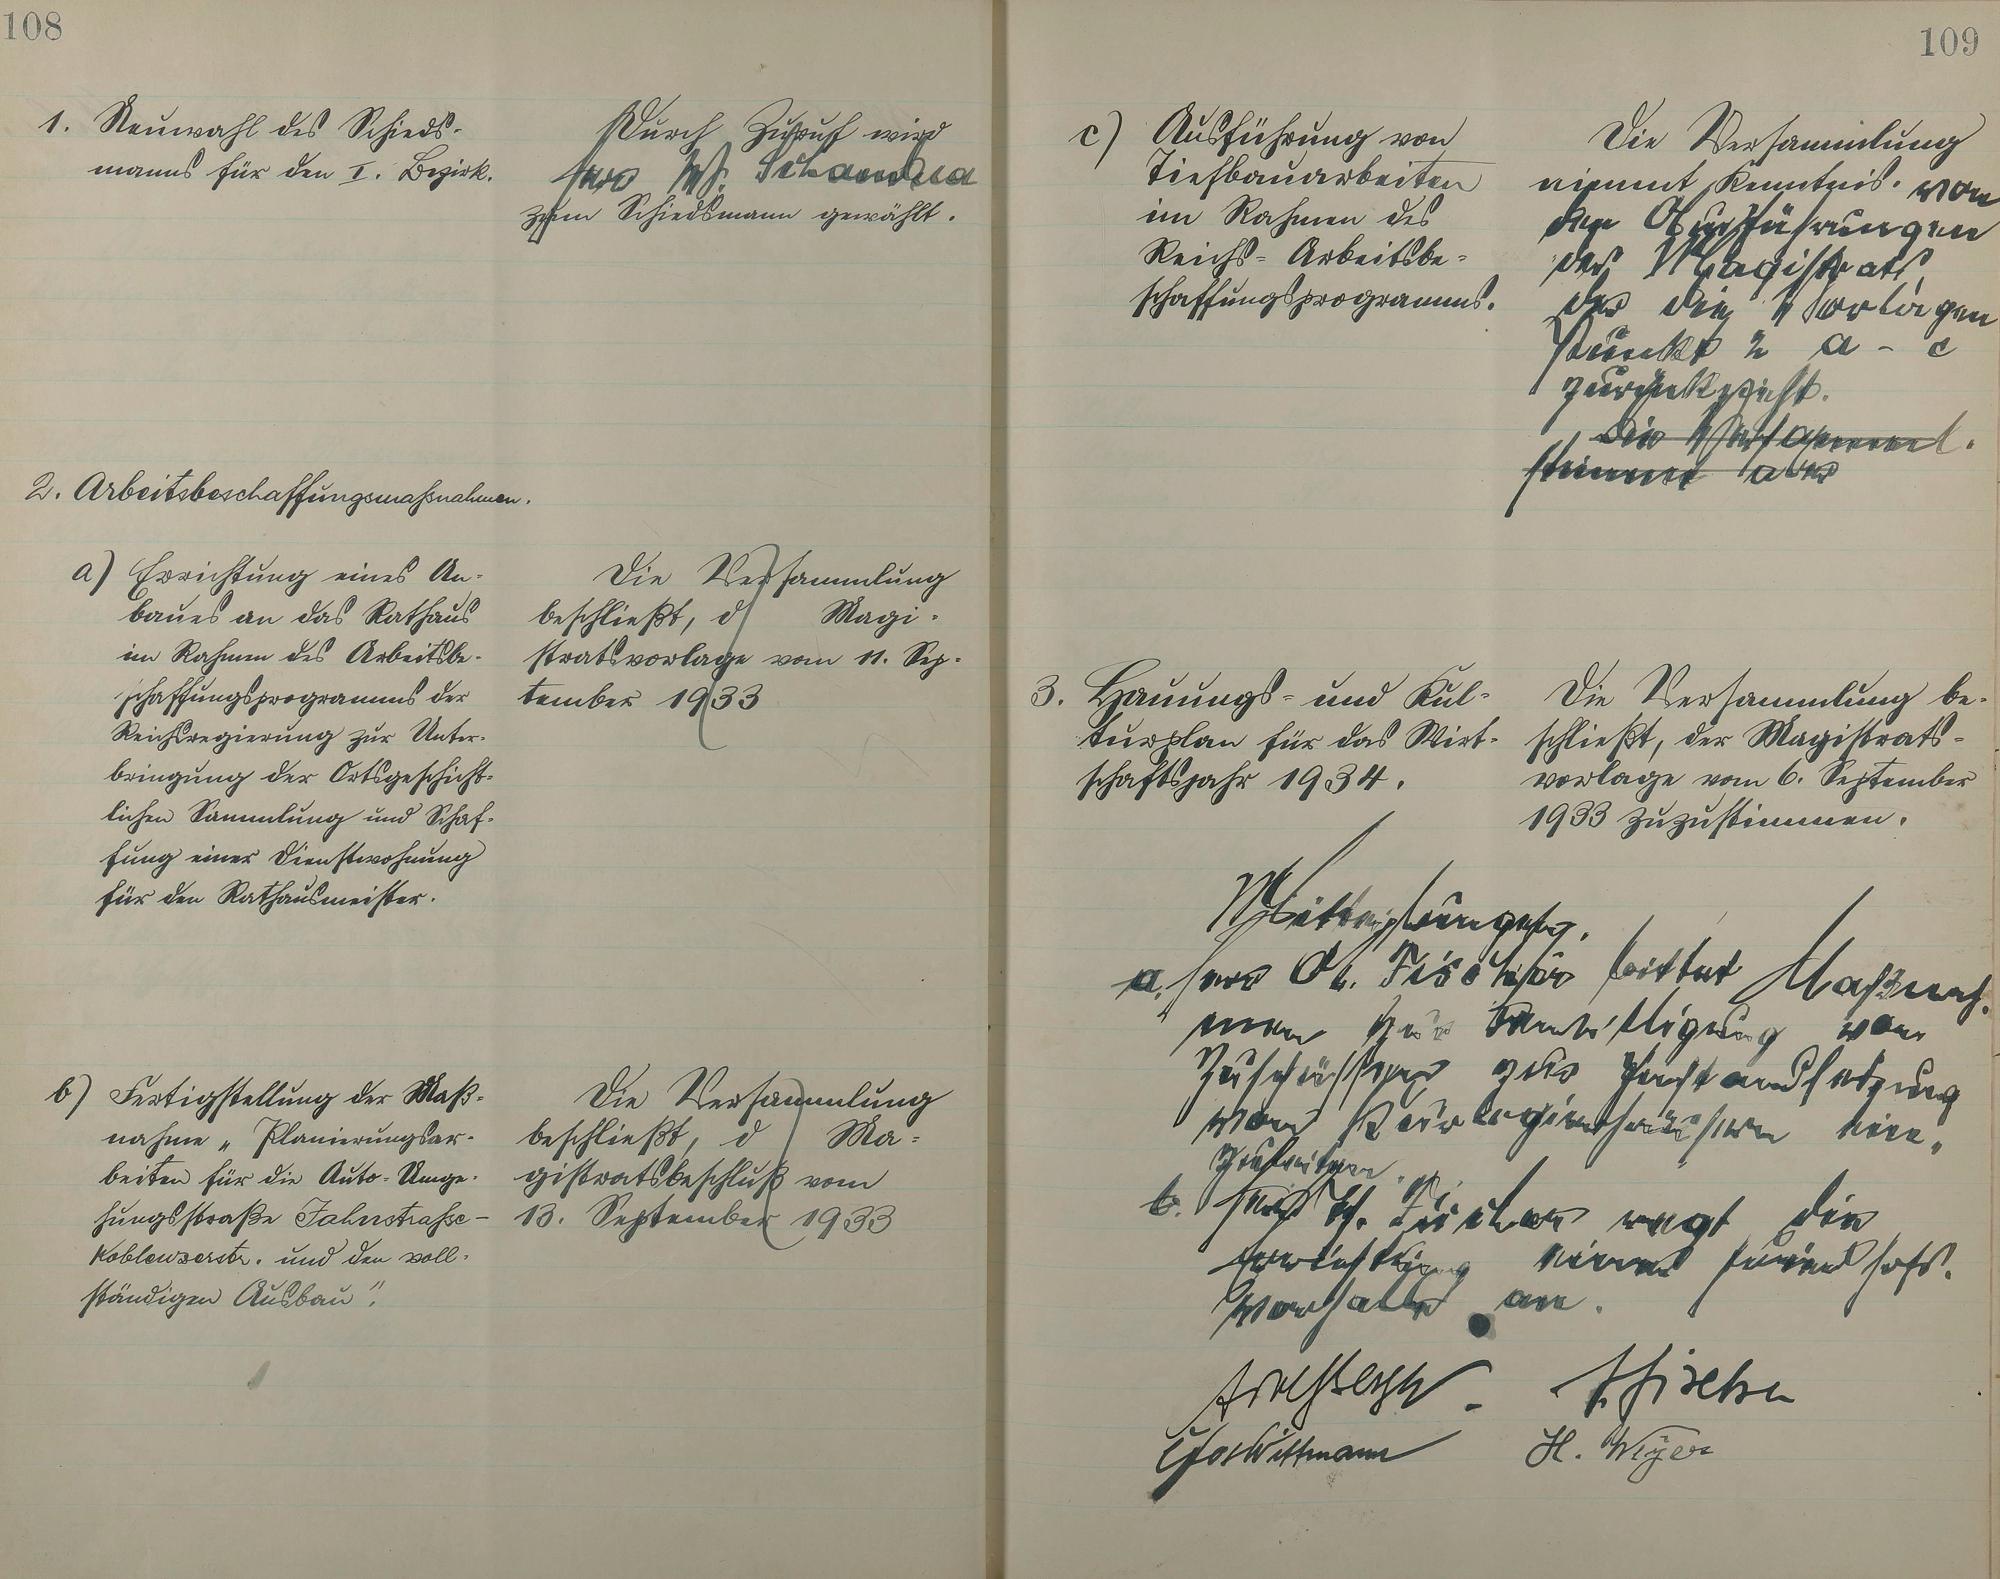 108
1. Neuwahl des Schieds-
manns für den I. Bezirk.
Durch Zuruf wird
Herr
zum Schiedsmann gewählt.
2. Arbeitsbeschaffungsmassnahmen.
a) Errichtung eines An-
baues an das Rathaus
im Rahmen des Arbeitsbe-
schaffungsprogramms der
Reichsregierung zur Unter-
bringung der Ortsgeschicht-
lichen Sammlung und Schaf-
fung einer Dienstwohnung
für den Rathausmeister.
Die Versammlung
beschließt, d Magi-
stratsvorlage vom 11. Sep-
tember 1933
b) Fertigstellung der Maß-
nahme „Planierungsar-
beiten für die Auto-Umge-
hungsstraße Jahnstrasse-
Koblenzerstr. und den voll-
ständigen Ausbau".
Die Versammlung
beschließt, d Ma-
gistratsbeschluß vom
13. September 1933
109
c) Ausführung von
Tiefbauarbeiten
im Rahmen des
Reichs-Arbeitsbe-
schaffungsprogramms.
Die Versammlung
nimmt Kenntnis. von
den Ausführungen
des Magistrats,
der die Vorlagen
Punkt 2 a - c
zurückzieht.
Die Versamml.
stimmt
3. Hauungs- und Kul-
turplan für das Wirt-
schaftsjahr 1934.
Die Versammlung be-
schließt, der Magistrats-
vorlage vom 6. September
1933 zuzustimmen.
Mitteilungen.
a. Herr bittet Maßnah-
men zur Bewilligung von
Zuschüssen zur Instandsetzung
von ein-
zuleiten.
b. Herr Fischer regt die
Errichtung einer
an.
Wittmann
H. Meyer